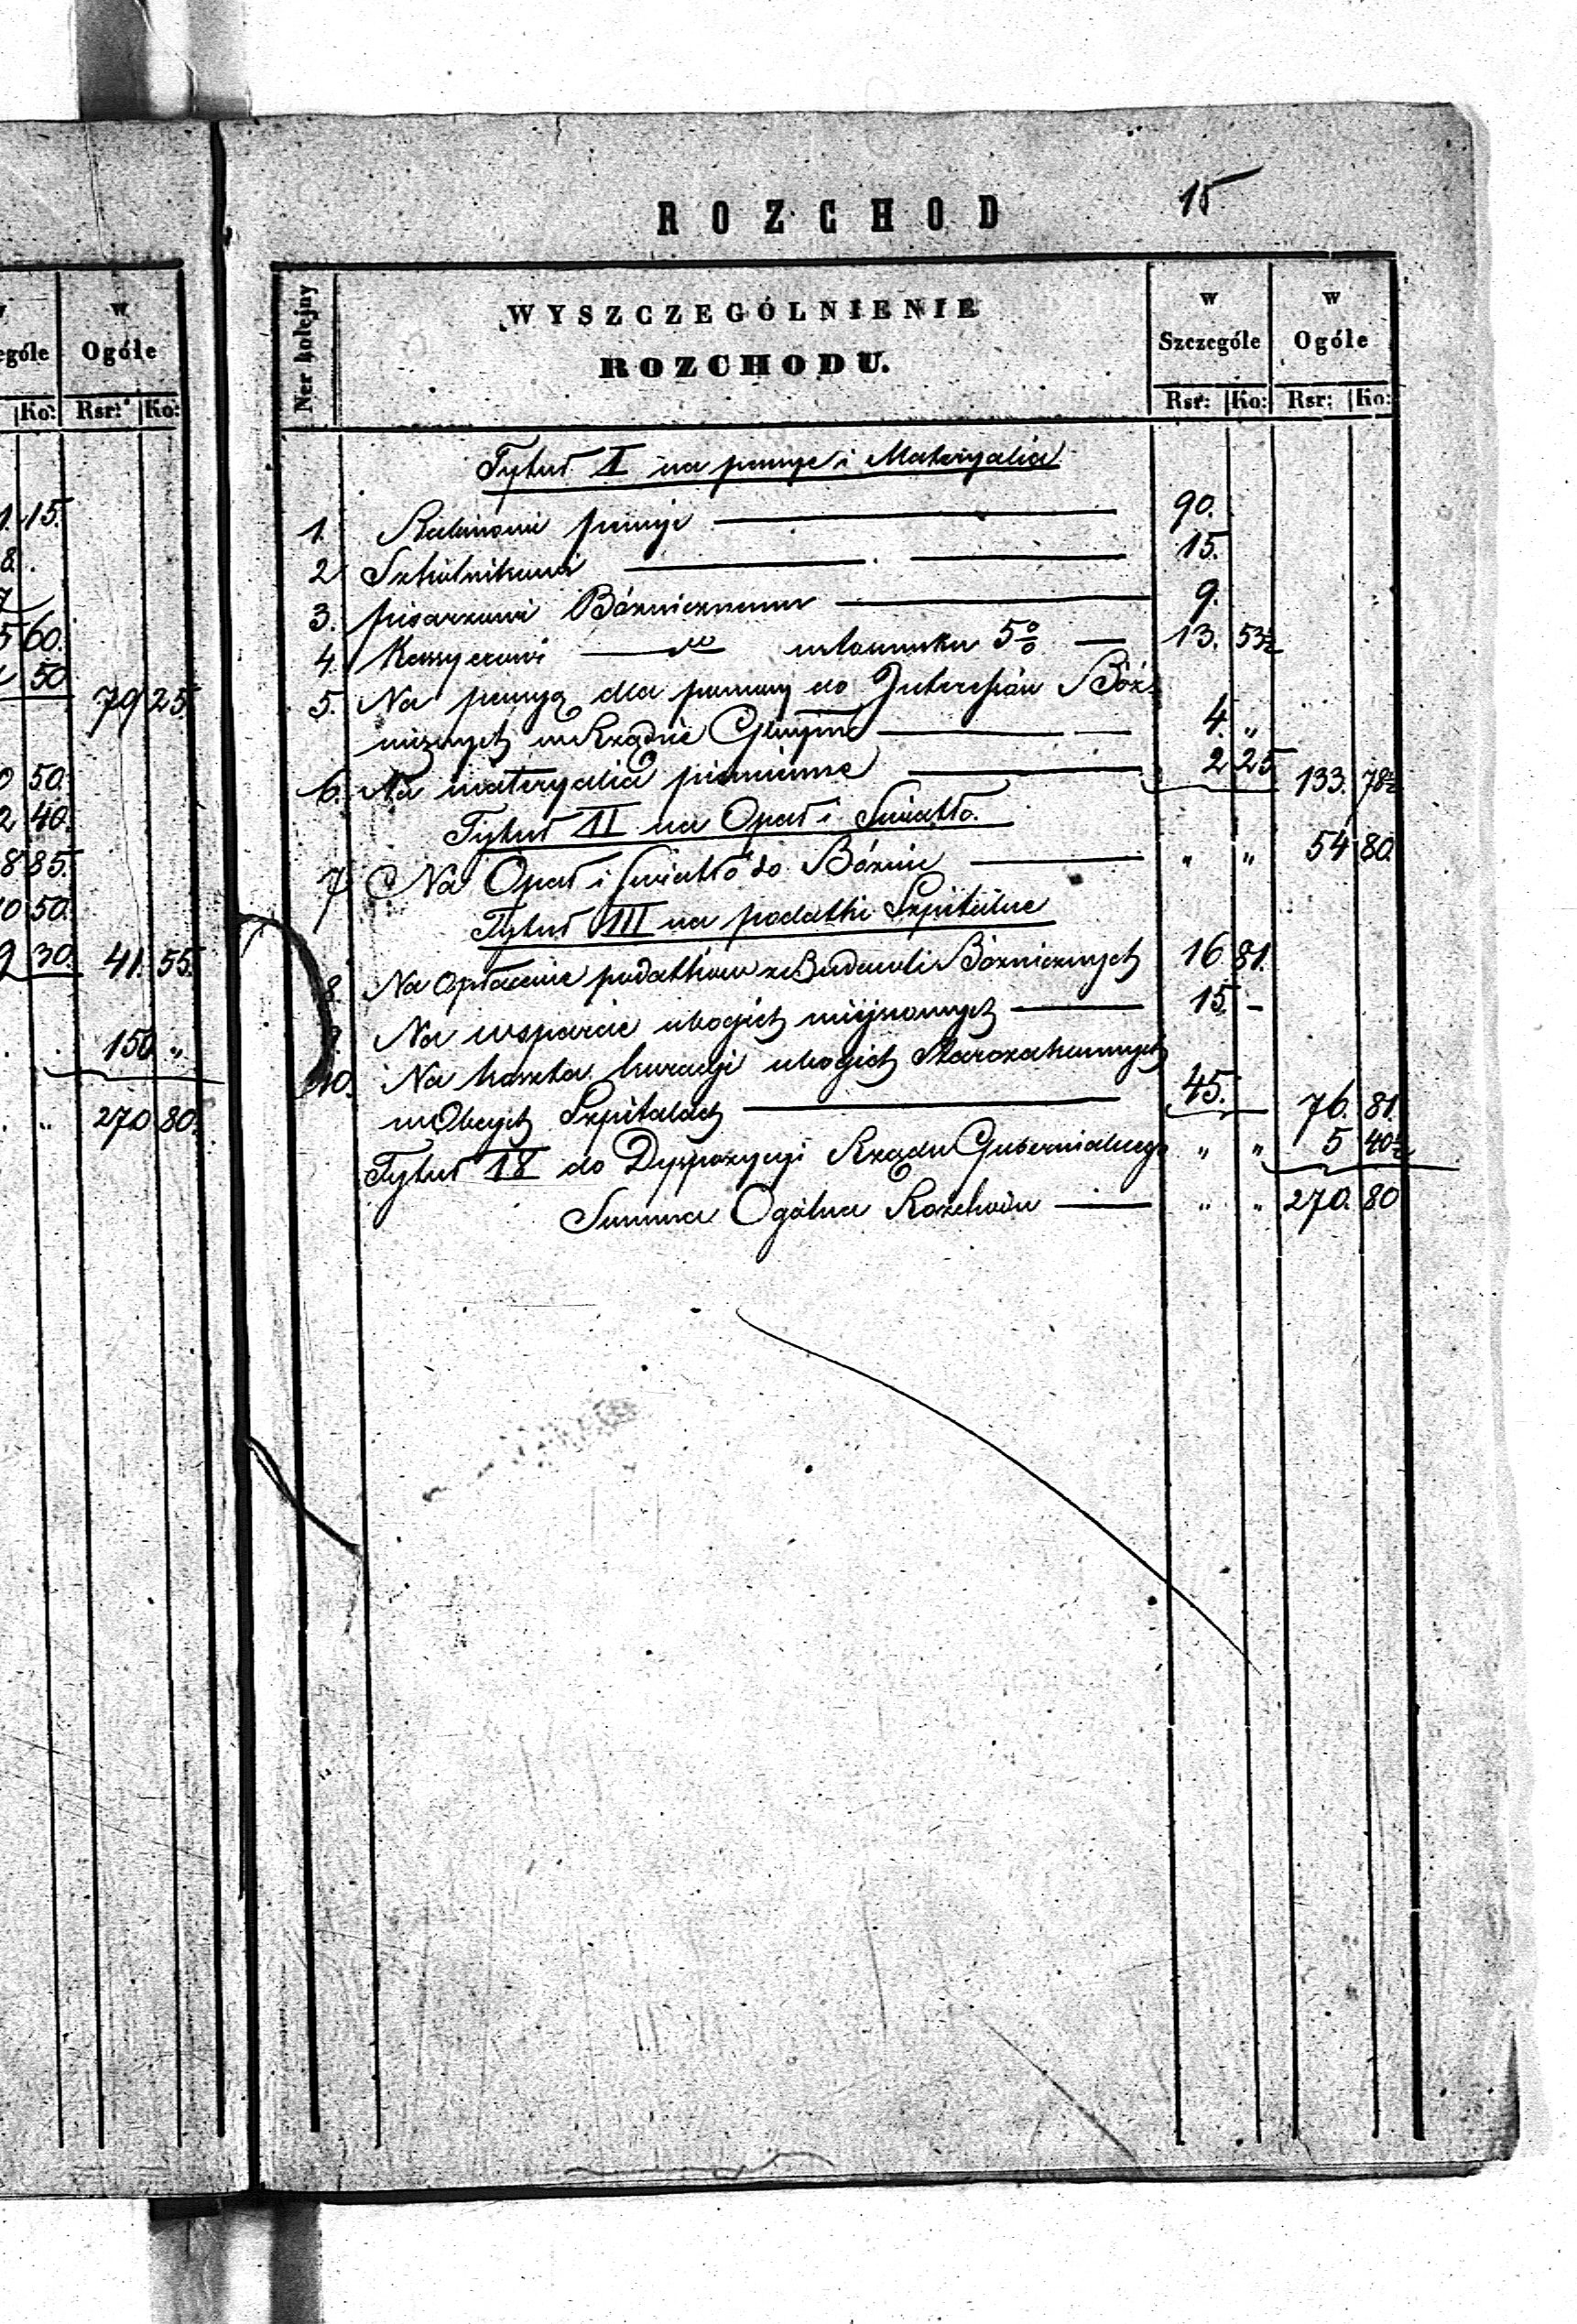 15
ROZCHOD
Ner kolejny
WYSZCZEGÓLNIENIE
ROZCHODU.
w Szczególe
w Ogóle
Rsr: Ko: Rsr: Ko:
Tytuł II na pensye i Materyalia
1. Rabinowi pensyi 90.
2 Szkólnikowi 15.
3. pisarzowi Bóżnicznemu 9.
4. Kassyerowi 5% 13. 53½
5. Na pensyą dla do Interessów Bóż-
nicznych w Rządzie 4. "
6. Na materyalia piśmienne 2 25 133. 78½
Tytuł II na Opał i Światło.
7 Na Opał i Światło do Bóżnic " " 54 80.
Tytuł III na podatki Szpitalne
8. Na Opłacenie podatków z Budowli Bóżnicznych 16 81.
9. Na wsparcie ubogich miejscowych 15. -
10. Na koszta kuracyi ubogich Starozakonnych
w Obcych Szpitalach 45. 76. 81.
Tytuł do Dyspozycyi Rządu Gubernialnego " " 5 40½
Summa Ogólna Rozchodu " " 270. 80
w
Ogóle
Ko: Rsr: Ko:
15.
60.
50 79 25.
50.
40.
85.
50.
30. 41. 55.
150 "
" 270 80.